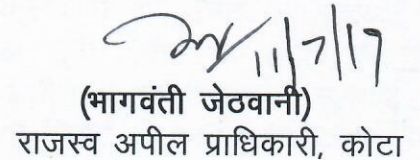 11/7/17
(भागवंती जेठवानी)
राजस्व अपील प्राधिकारी, कोटा